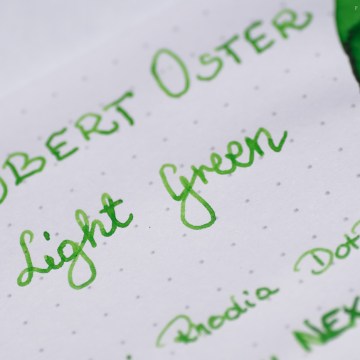 OBERT OSTER
Light Green
Rhodia Dot
NEX